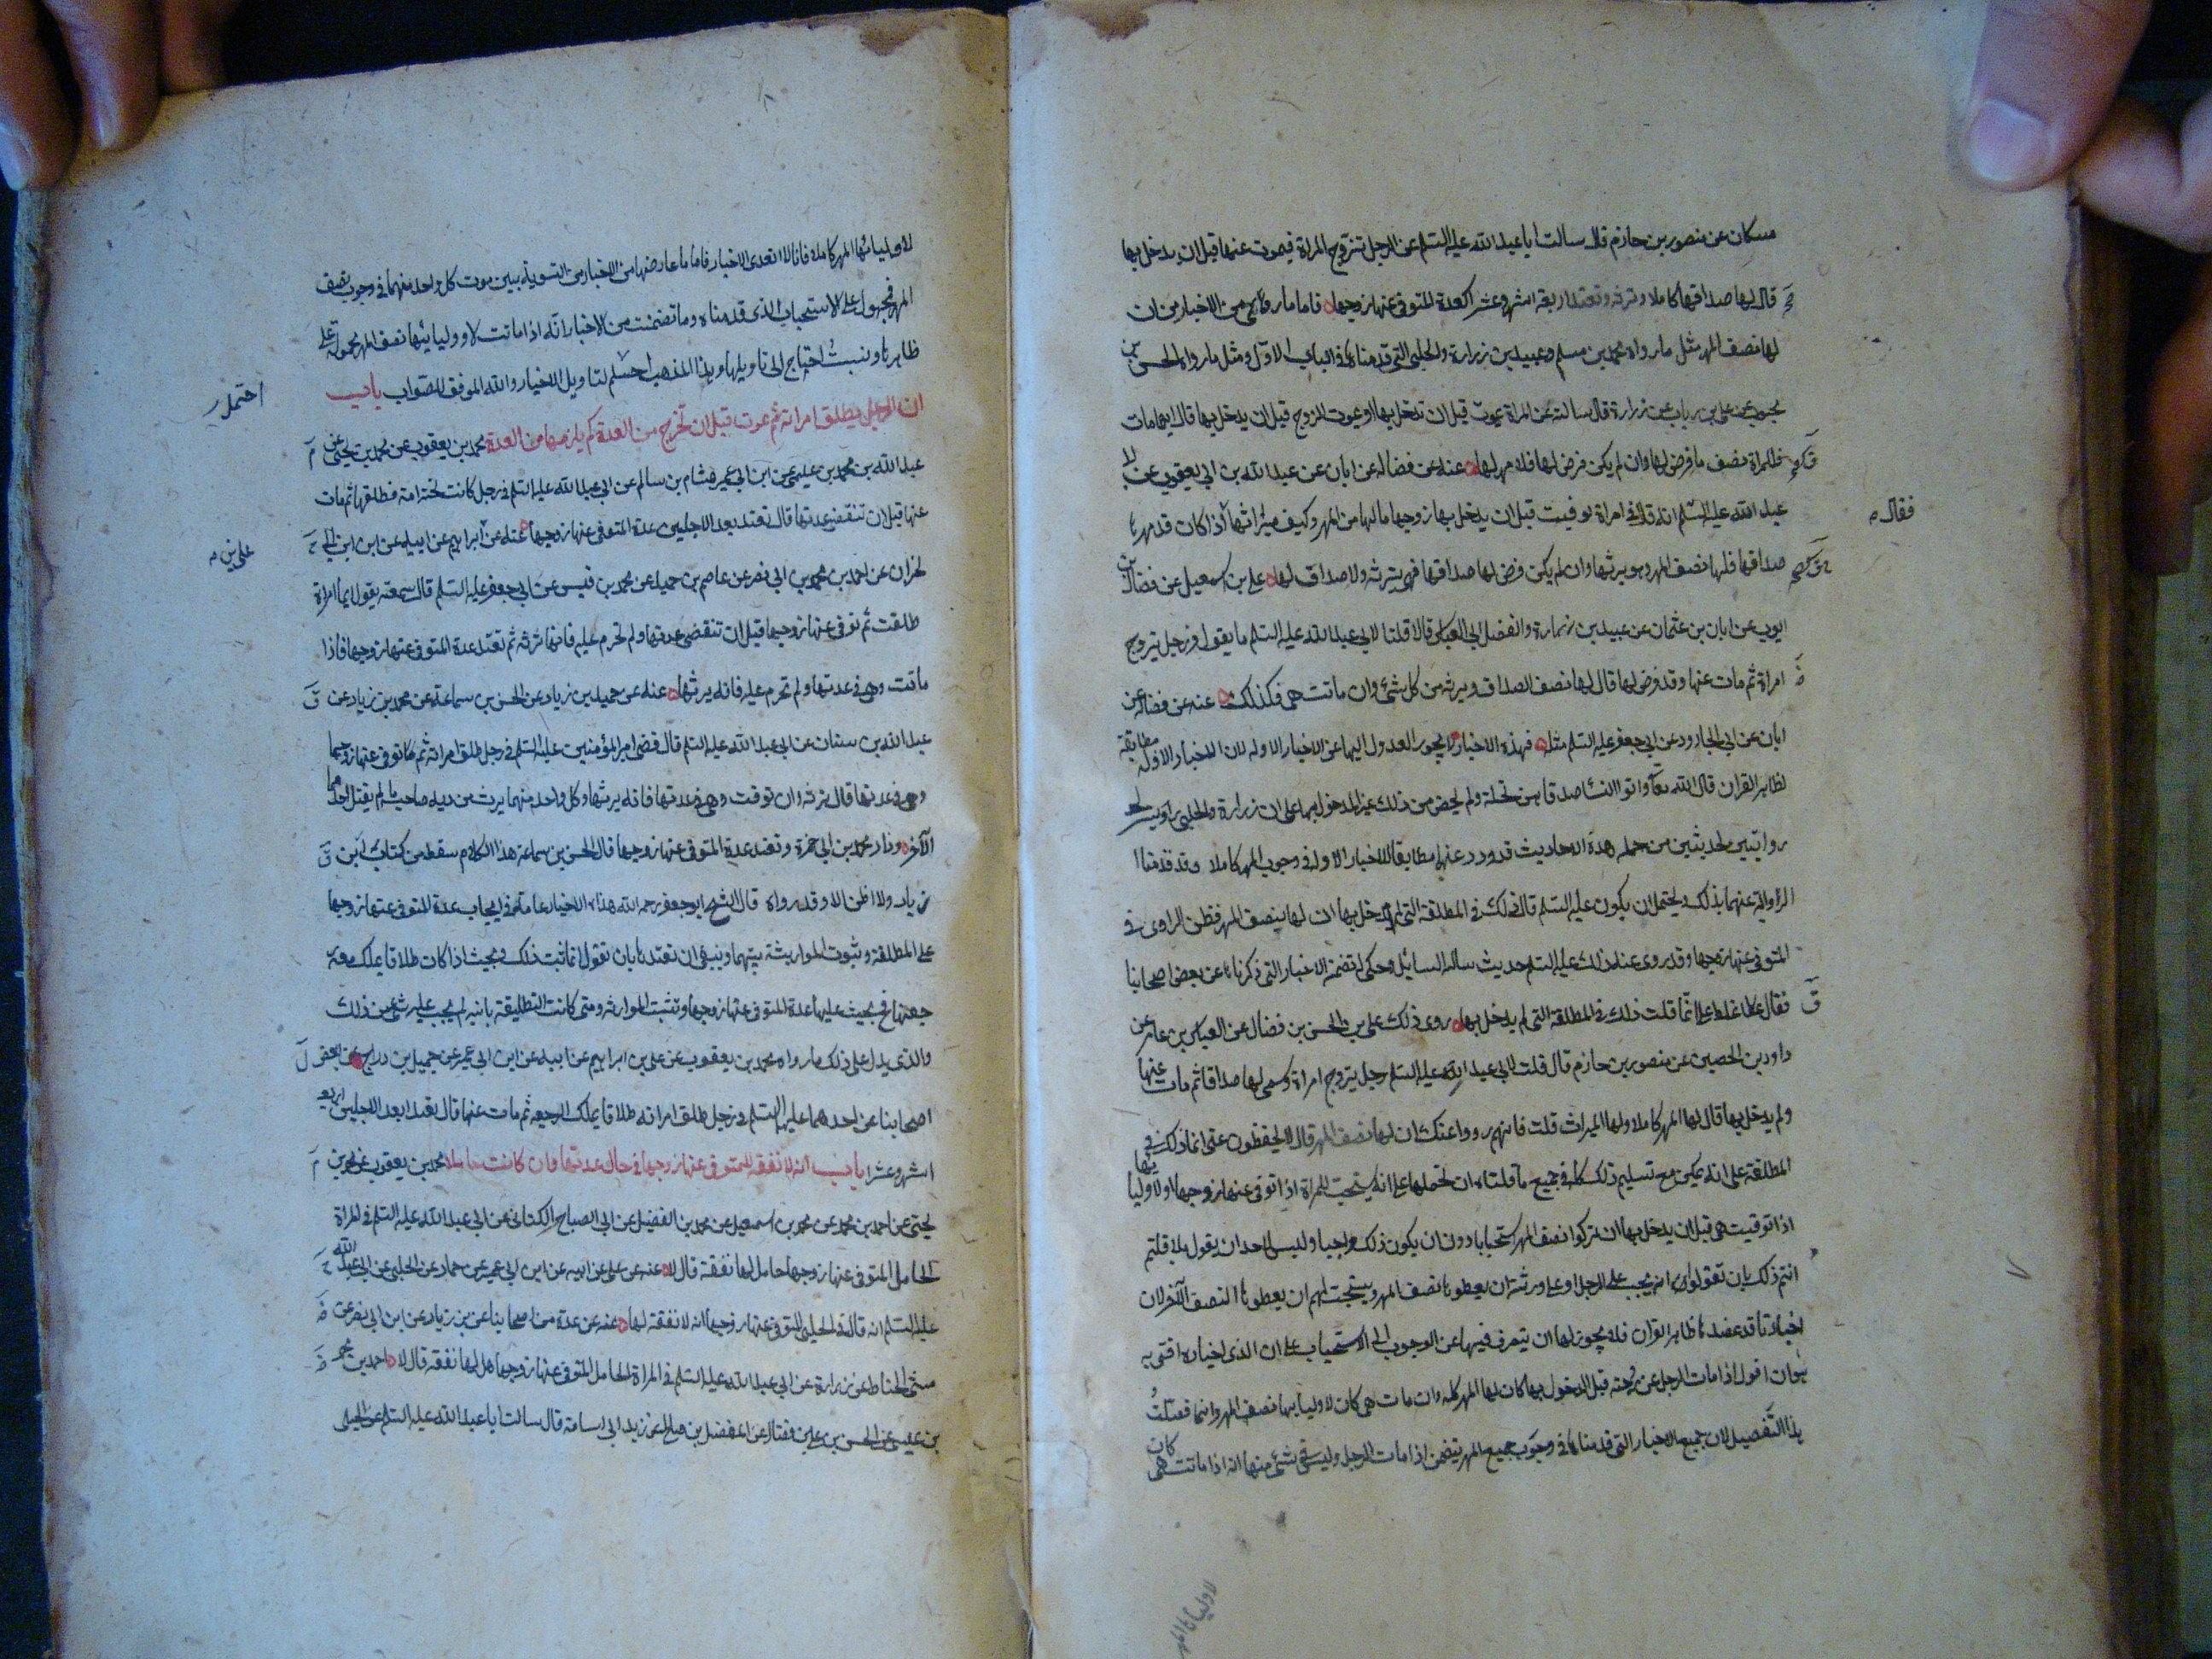 مسكان عن منصور بن حازم قال سالت ابا عبد الله عليه السلم عن الرجل تزوج المراة فيموت عنها قبل ان يدخل بها
قال لها صداقها كاملا وترثه وتعتد اربعة اشهر وعشرا كعدة المتوفى عنها زوجها فاما ما روى من الاخبار من ان
لها نصف المهر مثل ما رواه محمد بن مسلم وعبيد بن زرارة والحلبى التى قدمناها فى الباب الاول ومثل ما رواه الحسن بن
محبوب عن على بن رياب عن زرارة قال سالته عن المراة تموت قبل ان يدخل بها او يموت الزوج قبل ان يدخل بها قال ايهما مات
فللمراة نصف ما فرض لها وان لم يكن فرض لها فلا مهر لها عنه عن فضاله عن ابان عن عبد الله بن ابى يعفور عن
عبد الله عليه السلم انه قال فى امراة توفيت قبل ان يدخل بها زوجها ما لها من المهر وكيف ميراثها اذا كان قد مهرها
فقال
صداقها فلها نصف المهر وهو يرثها وان لم يكن فرض لها صداقها فهى ترثه ولا صداق لها على بن اسمعيل عن فضالة بن
ايوب عن ابان بن عثمان عن عبيد بن زرارة والفضل ابى العباس قالا قلنا لابى عبد الله عليه السلم ما يقول فى رجل تزوج
امراة ثم مات عنها وقد فرض لها قال لها نصف الصداق وترثه من كل شئ وان ماتت هى فكذلك عنه عن فضاله عن
ابان عن ابى الجارود عن ابى جعفر عليه السلم مثله فهذه الاخبار لا يجوز العدول اليها عن الاخبار الاوله لان الاخبار الاوله مطابقة
لظاهر القران قال الله تعا واتوا النسا صدقاتهن نحلة ولم يخص من ذلك غير المدخول بها على ان زرارة والحلبى راويى
روايتين لحديثين من جمله هذه الاحاديث قد ورد عنهما مطابقا للاخبار الاوله فى وجوب المهر كاملا وقد قدمنا
الرواية عنهما بذلك ويحتمل ان يكون عليه السلم قال ذلك فى المطلقة التى لم يدخل بها ان لها نصف المهر فظن الراوى فى
المتوفى عنها زوجها وقد روى عنه ذلك عليه السلم حديث ساله السائل وحكى له تضمنه الاخبار التى ذكرناها عن بعض اصحابنا
فقال غلط على انما قلت ذلك فى المطلقة التى لم يدخل بها روى ذلك على بن الحسن بن فضال عن العباس بن عامر عن
داود بن الحصين عن منصور بن حازم قال قلت لابى عبد الله عليه السلم رجل يتزوج امراة وسمى لها صداقا ثم مات عنها
ولم يدخل بها قال لها المهر كاملا ولها الميراث قلت فانهم رووا عنك ان لها نصف المهر قال لا يحفظون عنى انما ذلك فى
المطلقة على انه يمكن مع تسليم ذلك كله فى جميع ما قلناه ان نحملها على انه يستحب للمراة اذا توفى عنها زوجها او لاوليائها
اذا توفيت هى قبل ان يدخل بها ان تتركوا نصف المهر استحبابا دون ان يكون ذلك واجبا وليس لاحد ان يقول هلا قلتم
انتم ذلك بان تقولوا انه يجب على الرجل او على ورثته ان يعطوها نصف المهر ويستحب لهم ان يعطوها النصف الاخر لان
اخبارنا قد عضدها ظاهر القران فلا يجوز لها ان ينصرف فيها عن الوجوب الى الاستحباب على ان الذى اختاره افتى به
هو ان اقول اذا مات الرجل عن زوجته قبل الدخول بها كان لها المهر كله وان ماتت هى كان لاوليائها نصف المهر وانما فصلت
هذا التفصيل لان جميع الاخبار التى قدمناها فى وجوب جميع المهر يتضمن اذا مات الرجل وليس فى شئ منها انه اذا ماتت هى كان
لاوليائها المهر
لاوليائها المهر كاملا فانا لا اتعدى الاخبار فاما ما عارضها من الاخبار من التسوية بين موت كل واحد منهما فى وجوب نصف
المهر فمحمول على الاستحباب الذى قدمناه وما تضمنت من الاخبار انه اذا ماتت لاوليائها نصف المهر محموله على
ظاهرها ولست احتاج الى تاويلها وهذا المذهب اسلم لتاويل الاخبار والله الموفق للصواب باب
احتمل
ان الرجل يطلق امراته ثم يموت قبل ان تخرج من العدة كم يلزمها من العدة محمد بن يعقوب عن محمد بن يحيى عن
عبد الله بن محمد بن عيسى عن ابن ابى عمير عن هشام بن سالم عن ابى عبد الله عليه السلم فى رجل كانت تحته امة فطلقها ثم مات
عنها قبل ان تنقضى عدتها قال تعتد بعد الاجلين عدة المتوفى عنها زوجها عنه عن ابراهيم عن ابيه عن ابن ابى
على بن
نجران عن احمد بن محمد بن ابى نصر عن عاصم بن حميد عن محمد بن قيس عن ابى جعفر عليه السلم قال سمعته يقول ايما امراة
طلقت ثم توفى عنها زوجها قبل ان تنقضى عدتها ولم تحرم عليه فانها ترثه ثم تعتد عدة المتوفى عنها زوجها فاذا
ماتت وهى فى عدتها ولم تحرم عليه فانه يرثها عنه عن حميد بن زياد عن الحسن بن سماعة عن محمد بن زياد عن
عبد الله بن سنان عن ابى عبد الله عليه السلم قال قضى امير المؤمنين عليه السلم فى رجل طلق امراته ثم توفى عنها زوجها
وهى فى عدتها قال ترثه وان توفيت وهى فى عدتها فانه يرثها وكل واحد منهما يرث من دية صاحبه ما لم يقتل احدهما
الاخر وزاد محمد بن ابى حمزة وتعتد عدة المتوفى عنها زوجها قال الحسن بن سماعة هذا الكلام سقط من كتاب ابن
زياد ولا اظن الا وقد رواه قال الشيخ ابو جعفر رحمه الله هذه الاخبار عامة فى ايجاب عدة المتوفى عنها زوجها
على المطلقة وثبوت الموارثة بينهما وينبغى ان نقيدها بان نقول انما ثبت ذلك بحيث اذا كان طلاقا يملك معه
رجعتها فح يجب عليها عدة المتوفى عنها زوجها وتثبت الموارثه ومتى كانت التطليقة باينه لم يجب عليه شئ من ذلك
والذى يدل على ذلك ما رواه محمد بن يعقوب عن على بن ابراهيم عن ابيه عن ابن ابى عمير عن جميل بن دراج عن بعض
اصحابنا عن احدهما عليهما السلم فى رجل طلق امراته طلاقا يملك الرجعه ثم مات عنها قال تعتد ابعد الاجلين اربعه
اشهر وعشرا باب انه لا نفقه للمتوفى عنها زوجها فى حال عدتها وان كانت حاملا محمد بن يعقوب عن محمد بن
يحيى عن احمد بن محمد عن محمد بن اسمعيل عن محمد بن الفضيل عن ابى الصباح الكنانى عن ابى عبد الله عليه السلم فى المراة
الحامل المتوفى عنها زوجها هل لها نفقة قال لا عنه عن على عن ابيه عن ابن ابى عمير عن حماد عن الحلبى عن ابى عبد الله
عليه السلم انه قال فى الحبلى المتوفى عنها زوجها انه لا نفقة لها عنه عن عدة من اصحابنا عن بن زياد عن ابن ابى نصر عن
مثنى الحناط عن زرارة عن ابى عبد الله عليه السلم فى المراة الحامل المتوفى عنها زوجها هل لها نفقة قال لا احمد بن محمد
بن عيسى عن الحسن بن على بن فضال عن المفضل بن صالح عن زيد ابى اسامة قال سالت ابا عبد الله عليه السلم عن الحبلى